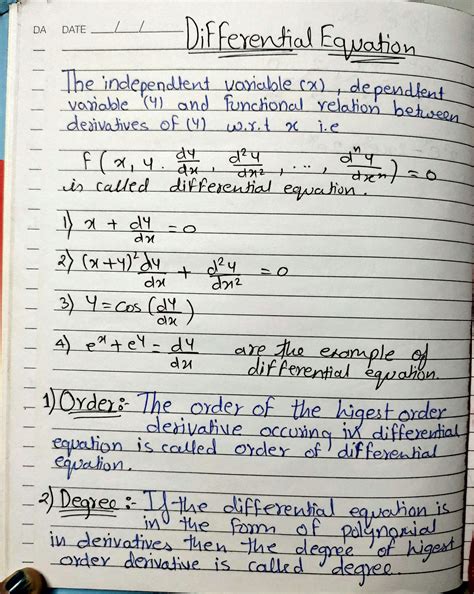 DA DATE __/__/__
Differential Equation
The independtent variable (x), dependtent
variable (y) and functional relation between
derivatives of (y) w.r.t x i.e
f(x, y. dy/dx, d²y/dx², ..., dⁿy/dxⁿ) = 0
is called differential equation.
1) x + dy/dx = 0
2) (x+y)² dy/dx + d²y/dx² = 0
3) y = cos(dy/dx)
4) eˣ + eʸ = dy/dx are the example of
differential equation.
1) Order:- The order of the higest order
derivative occuring in differential
equation is called order of differential
equation.
2) Degree:- If the differential equation is
in the form of polynomial
in derivatives then the degree of higest
order derivative is called degree.